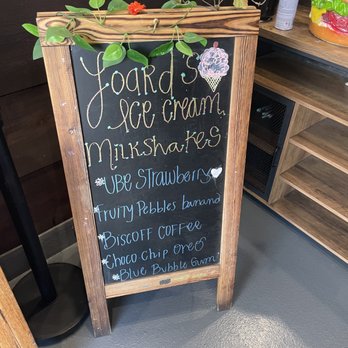 Yoard's
Ice cream,
Milkshakes
*UBE Strawberry
*Fruity Pebbles banana
*BISCOFF COFFEE
*Choco chip oreo
*Blue Bubble Gum